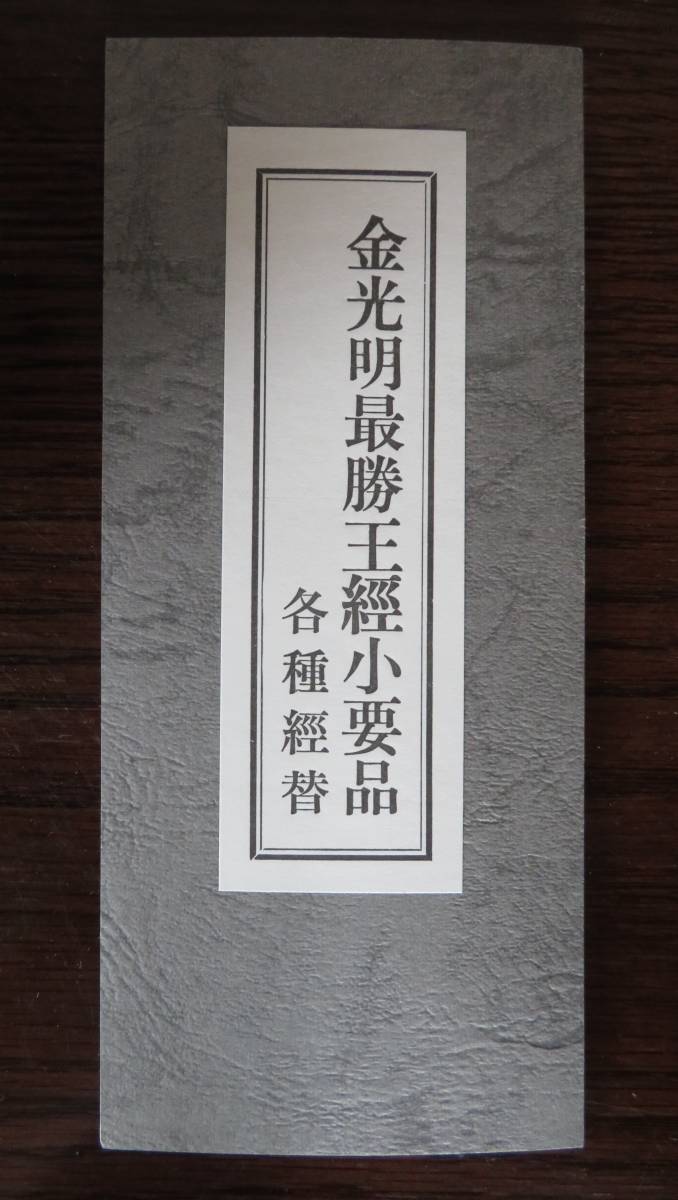 金光明最勝王經小要品
各種經替